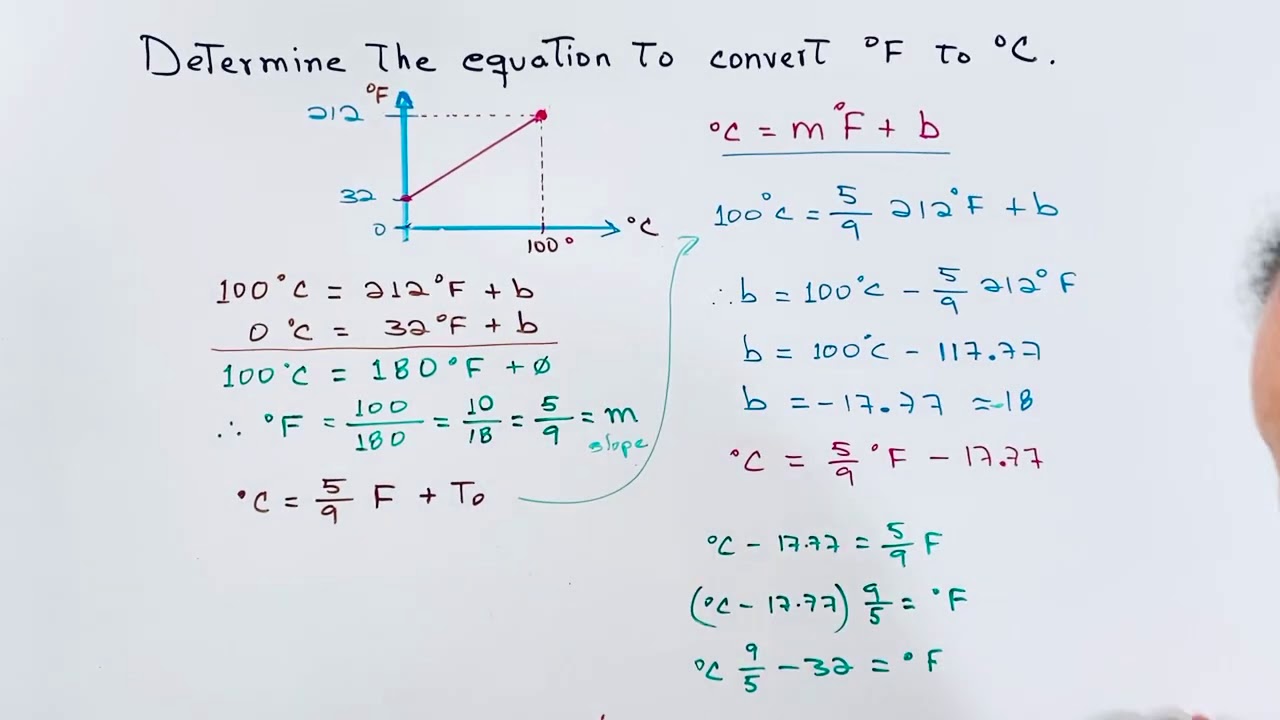 Determine The equation To convert °F to °C.
°F
212
32
0
100°
°C
100°C = 212°F + b
0 °C = 32°F + b
100°C = 180°F + ∅
∴ °F = 100/180 = 10/18 = 5/9 = m
slope
°C = 5/9 F + To
°C = m°F + b
100°C = 5/9 212°F + b
∴ b = 100°C - 5/9 212°F
b = 100°C - 117.77
b = -17.77 ≈ -18
°C = 5/9 °F - 17.77
°C - 17.77 = 5/9 F
(°C - 17.77) 9/5 = °F
°C 9/5 - 32 = °F